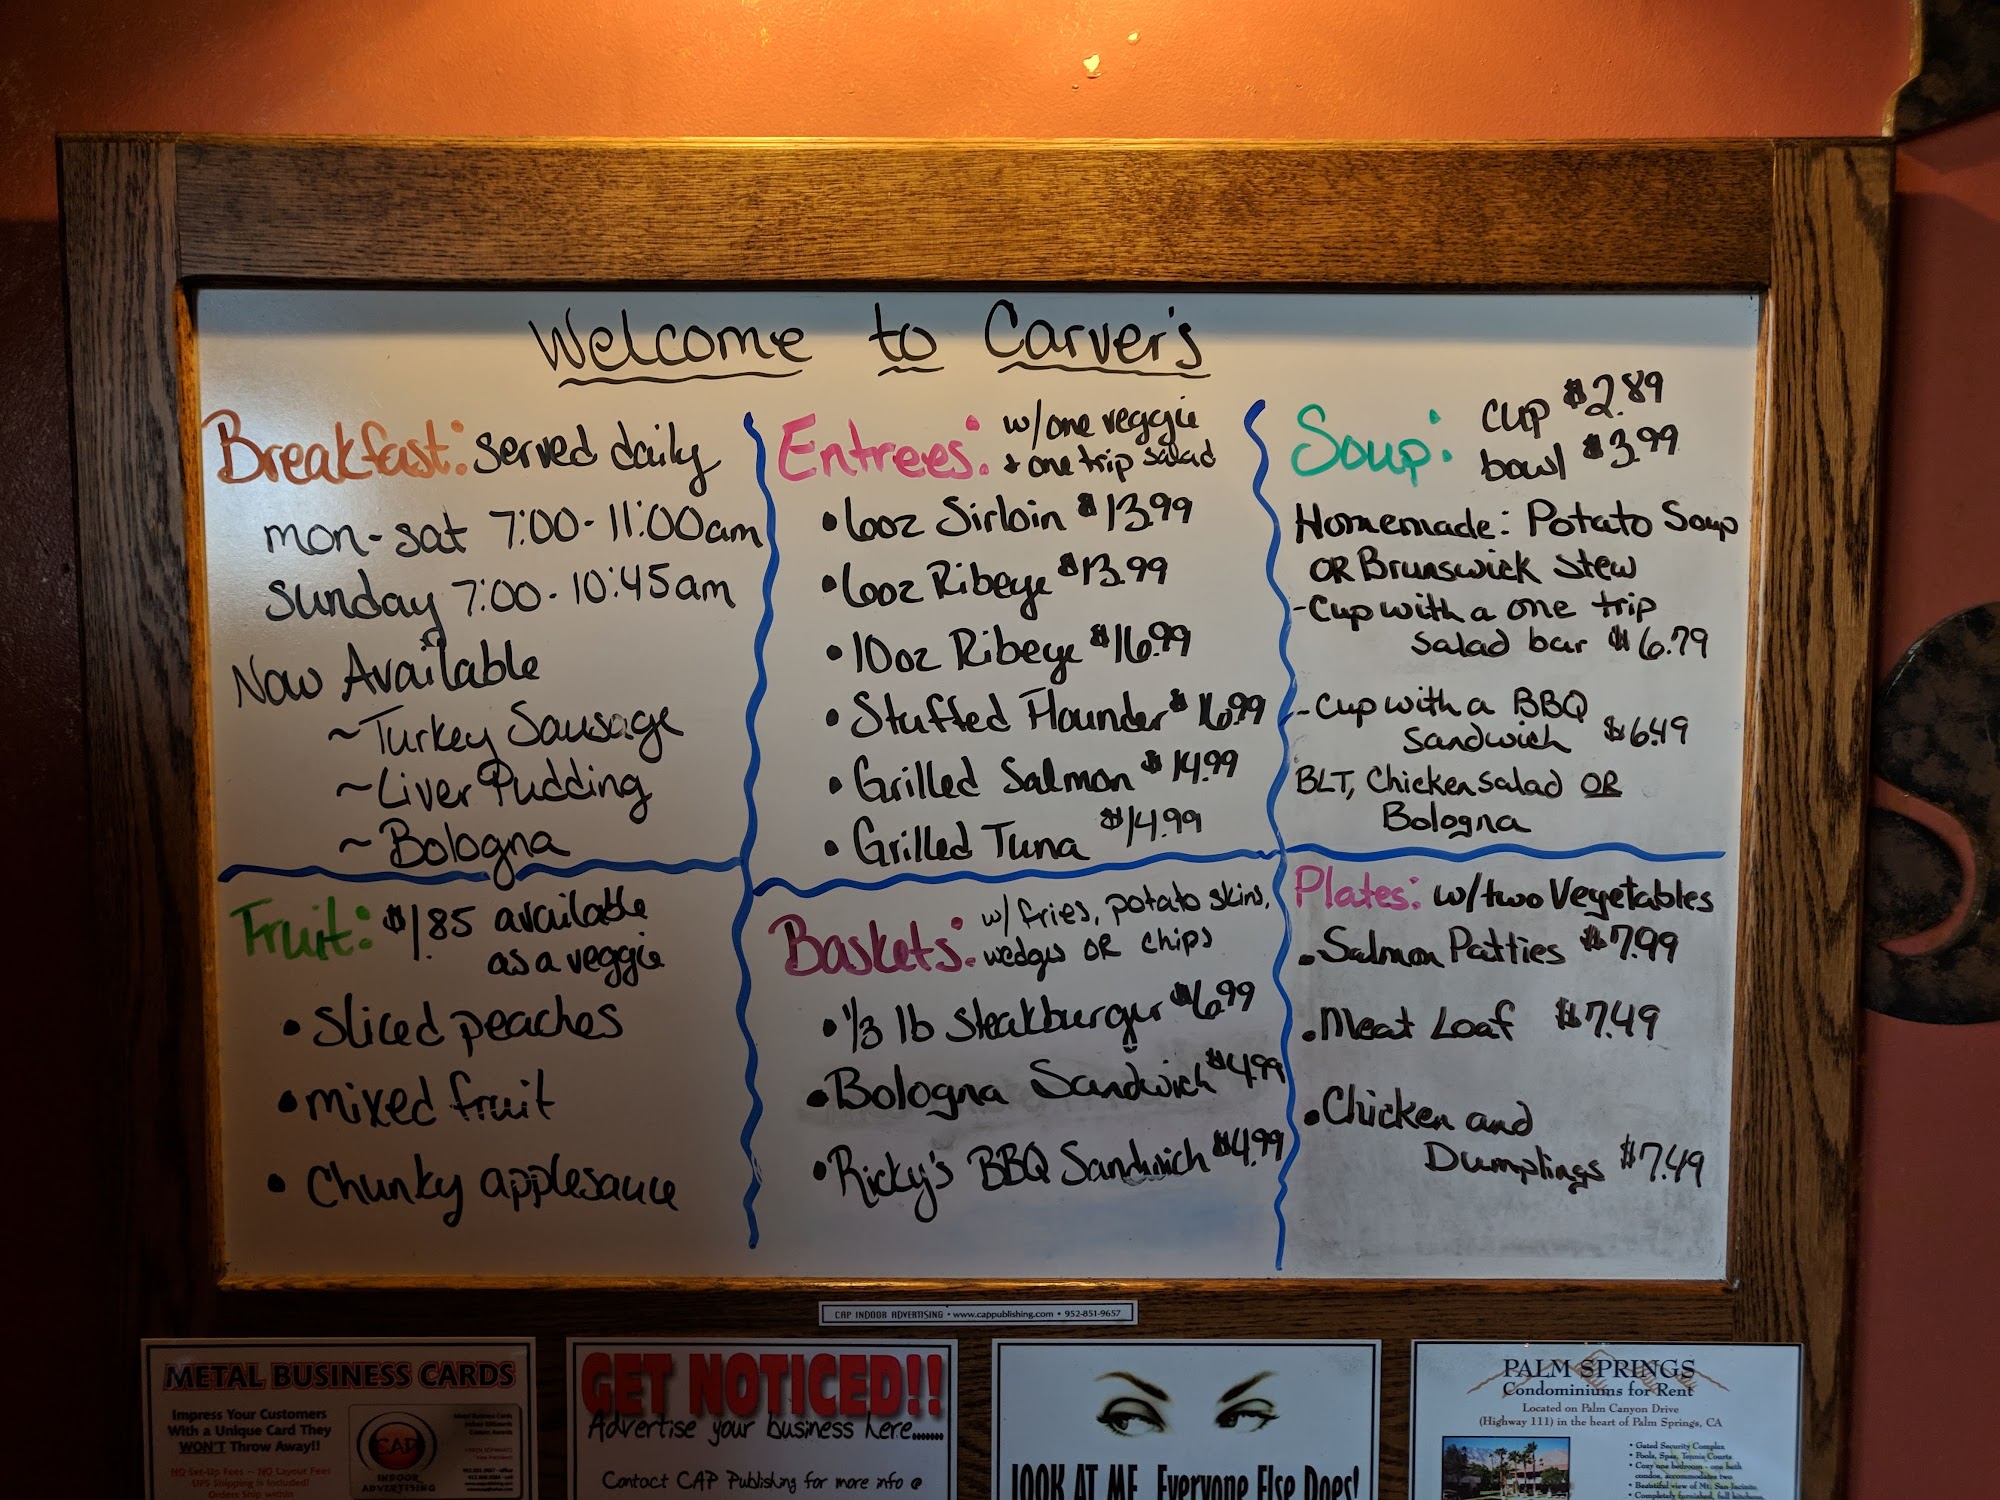 Welcome to Carver's
Breakfast: served daily
mon-sat 7:00-11:00am
sunday 7:00-10:45am
Now Available
~Turkey Sausage
~Liver Pudding
~Bologna
Entrees: w/one veggie
+ one trip salad
• 6oz Sirloin $13.99
• 6oz Ribeye $13.99
• 10oz Ribeye $16.99
• Stuffed Flounder $16.99
• Grilled Salmon $14.99
• Grilled Tuna $14.99
Soup: cup $2.89
bowl $3.99
Homemade: Potato Soup
OR Brunswick Stew
-Cup with a one trip
salad bar $6.79
-Cup with a BBQ
Sandwich $6.49
BLT, Chicken salad OR
Bologna
Fruit: $1.85 available
as a veggie
• sliced peaches
• mixed fruit
• Chunky applesauce
Baskets: w/ fries, potato skins,
wedges OR chips
• 1/3 lb steakburger $6.99
• Bologna Sandwich $4.99
• Ricky's BBQ Sandwich $4.99
Plates: w/two Vegetables
• Salmon Patties $7.99
• Meat Loaf $7.49
• Chicken and
Dumplings $7.49
CAP INDOOR ADVERTISING • www.cappublishing.com • 952-851-9657
METAL BUSINESS CARDS
Impress Your Customers
With a Unique Card They
WON'T Throw Away!!
NO Set-Up Fees ~ NO Layout Fees
UPS Shipping is Included!
Orders Ship within
CAP
INDOOR
ADVERTISING
GET NOTICED!!
Advertise your business here.......
Contact CAP Publishing for more info @
LOOK AT ME. Everyone Else Does!
PALM SPRINGS
Condominiums for Rent
Located on Palm Canyon Drive
(Highway 111) in the heart of Palm Springs, CA
• Gated Security Complex
• Pools, Spas, Tennis Courts
• Cozy one bedroom - one bath
condos, accommodates two
• Beautiful view of Mt. San Jacinto
• Completely furnished, full kitchens